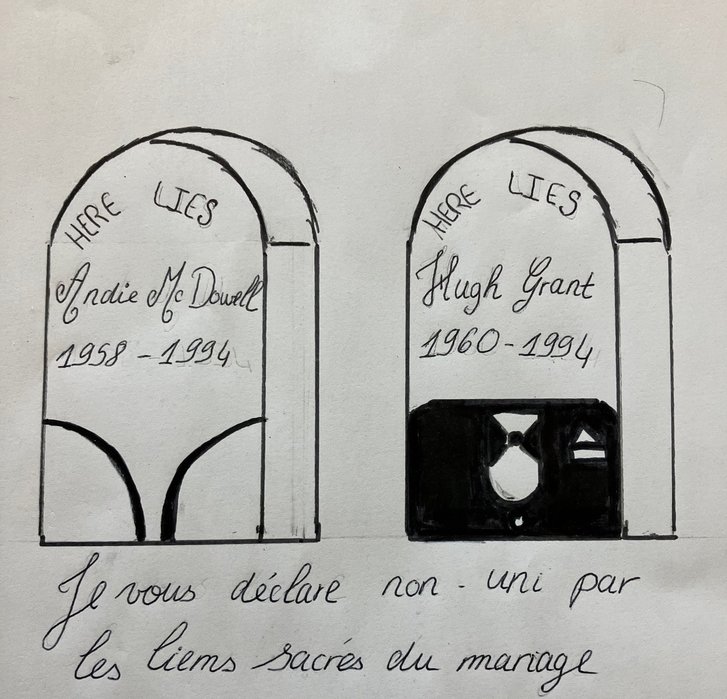 HERE LIES
Andie McDowell
1958-1994
HERE LIES
Hugh Grant
1960-1994
Je vous déclare non-uni par
les liens sacrés du mariage